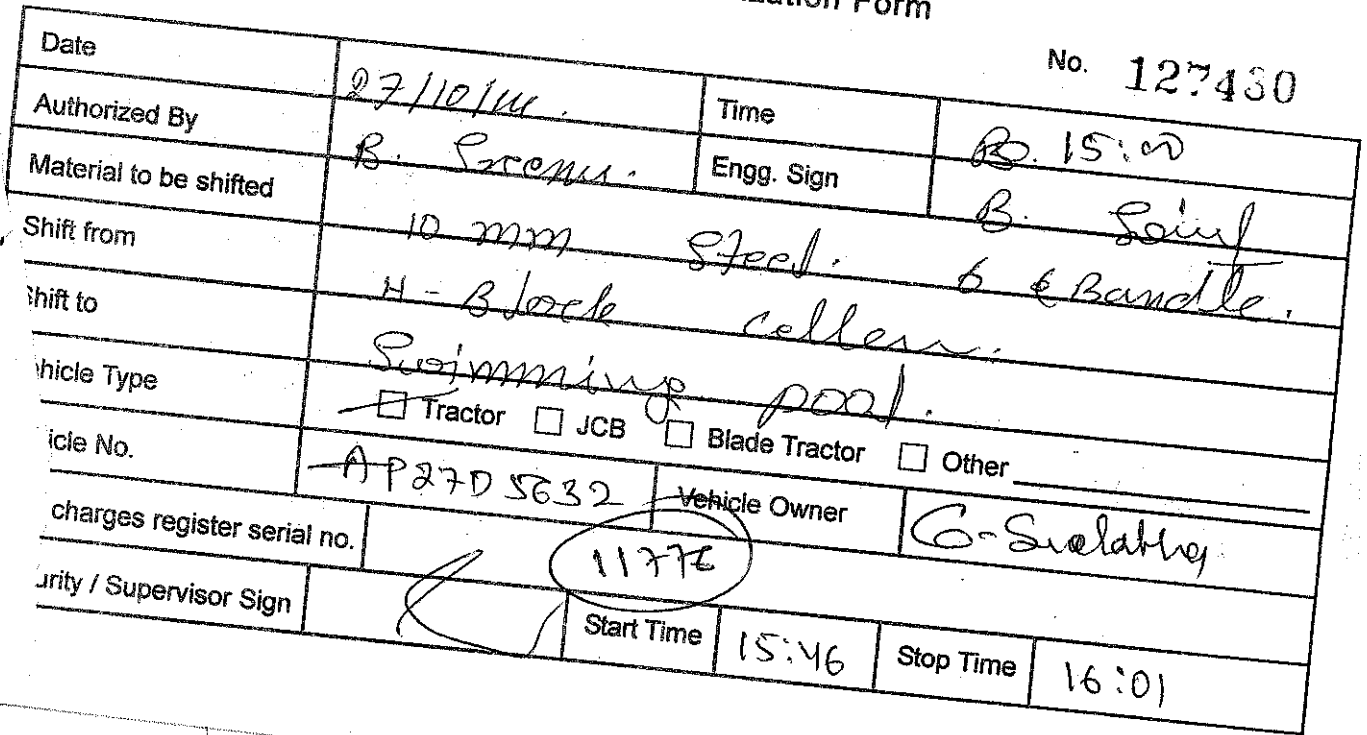 Form
No. 127430
Date 27/10/14. Time 15:00
Authorized By B. Sreenu. Engg. Sign B.
Material to be shifted 10 mm Steel. 6 Bandle.
Shift from H-Block celler.
hift to Swimming pool.
hicle Type Tractor JCB Blade Tractor Other
icle No. AP27D5632 Vehicle Owner G-Sulabha
charges register serial no. 11776
urity / Supervisor Sign Start Time 15:46 Stop Time 16:01